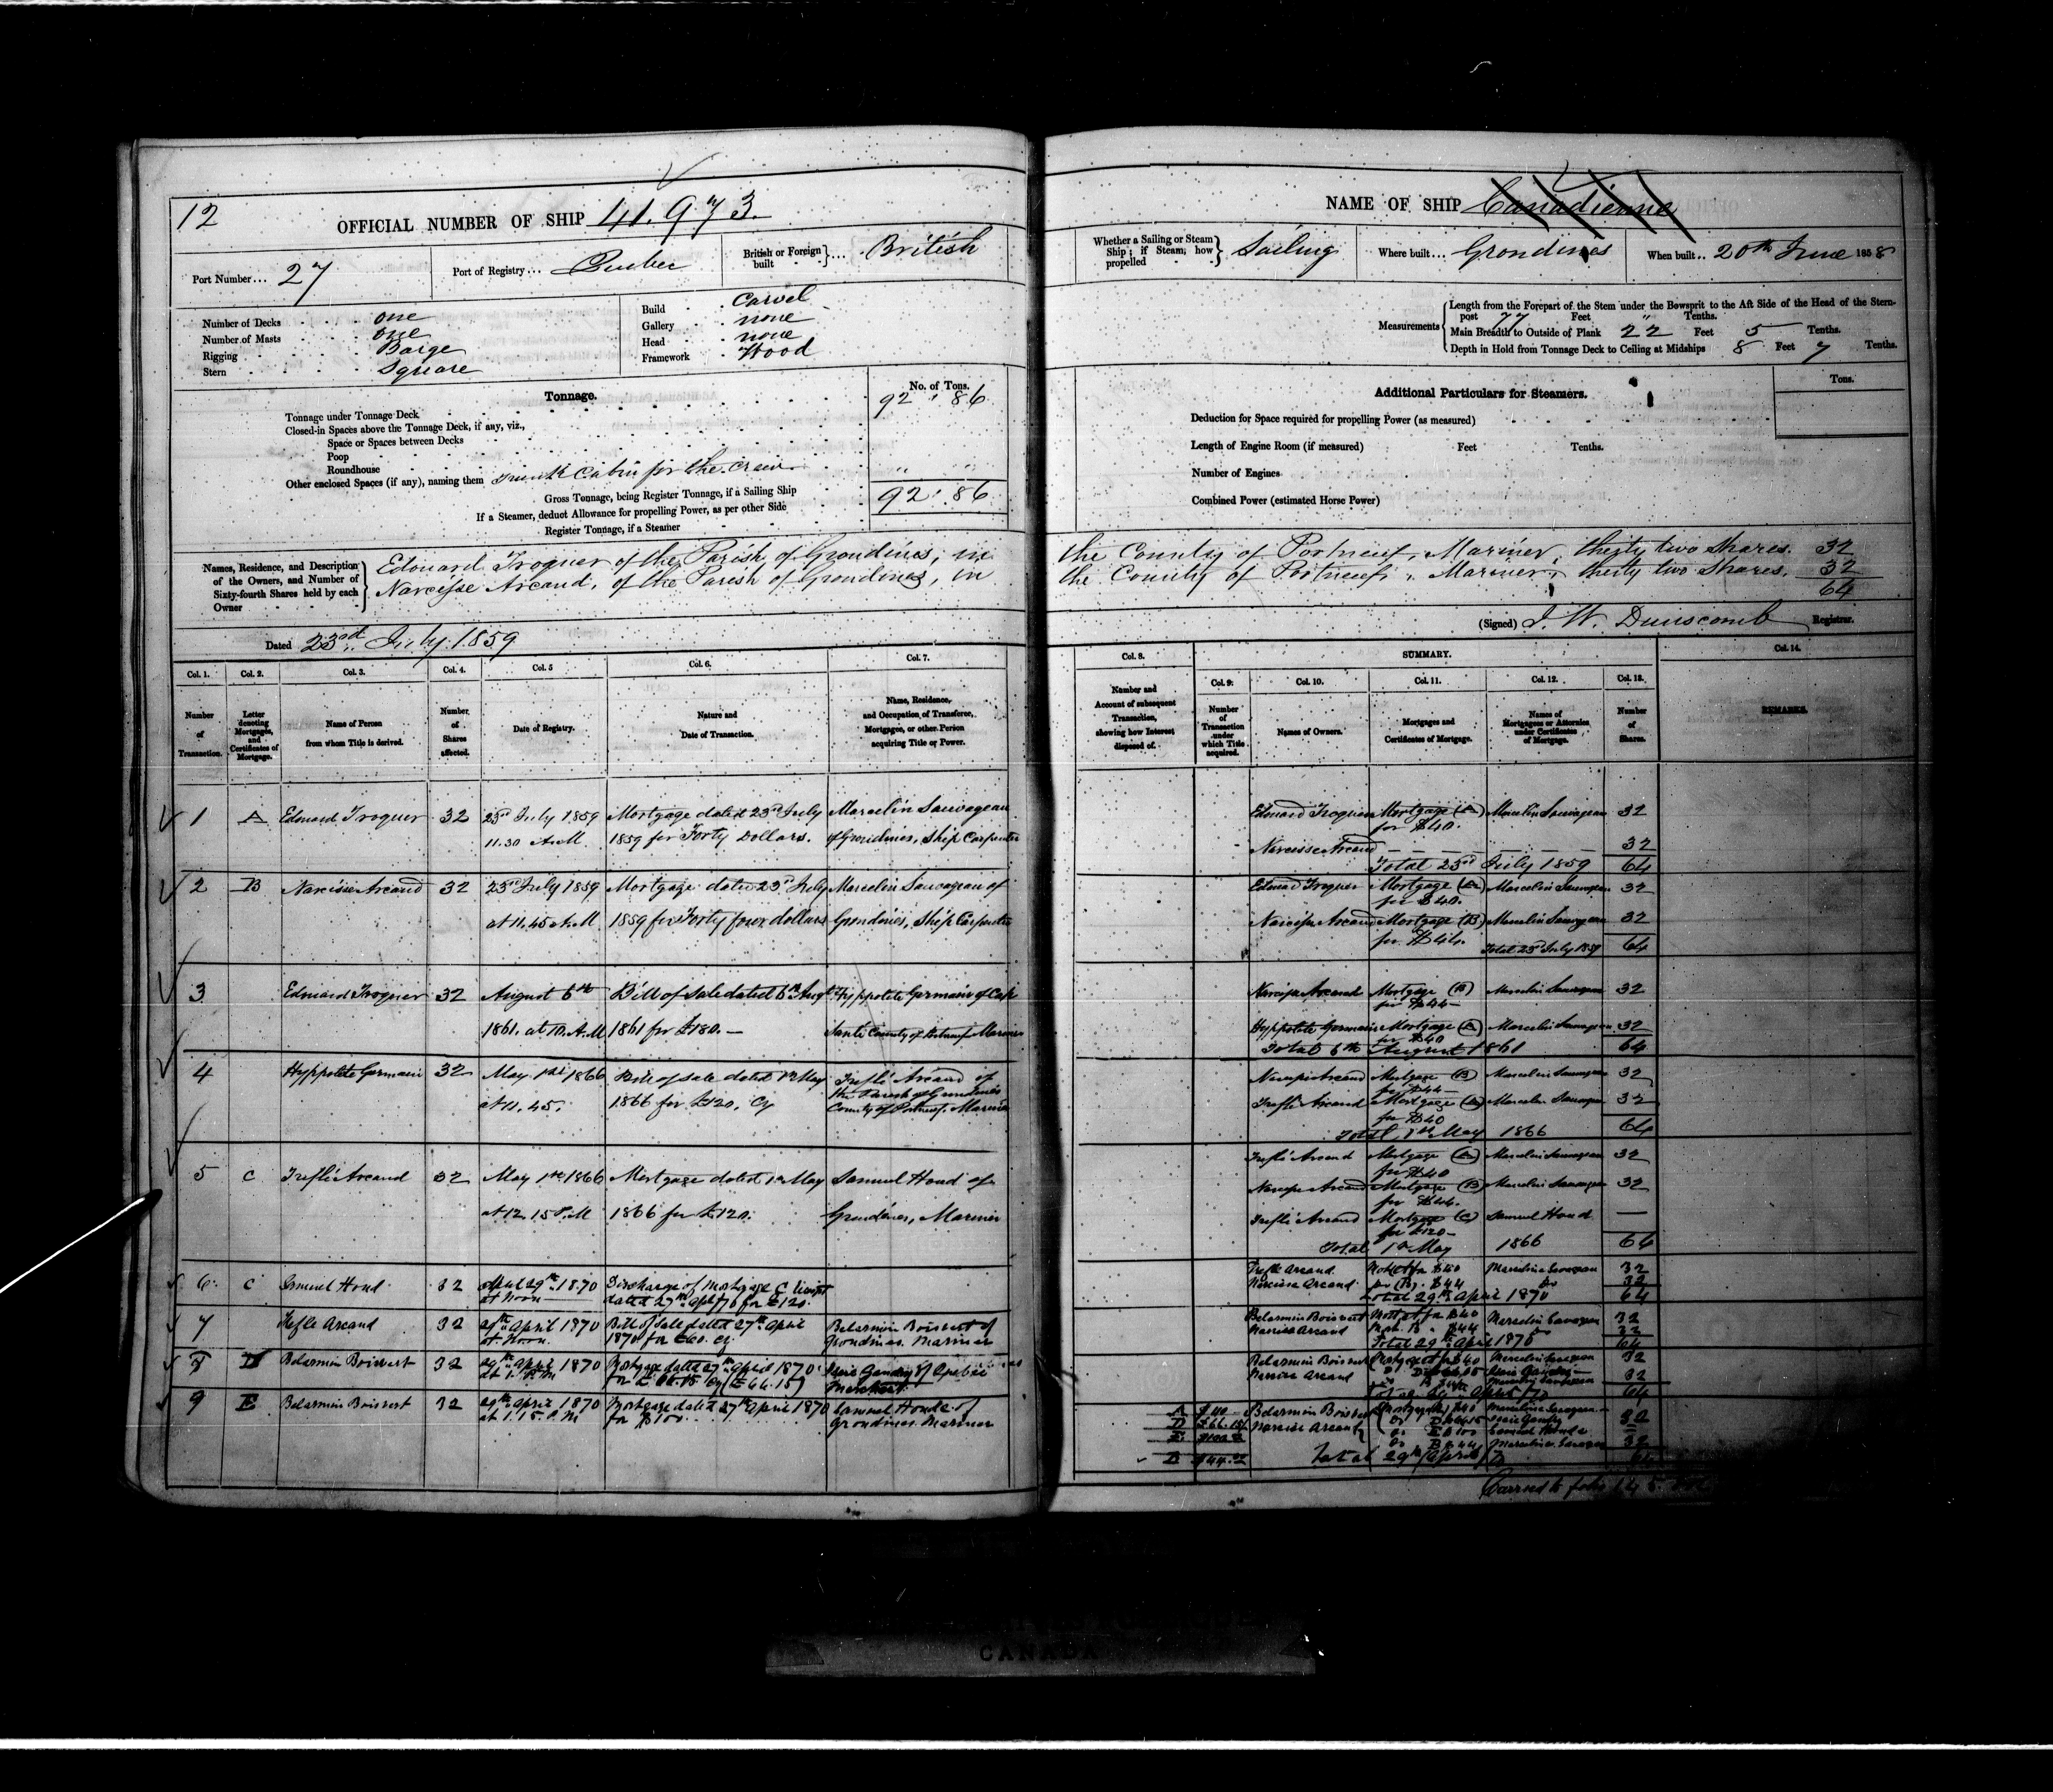 12
OFFICIAL NUMBER OF SHIP 41.973.
Port Number... 27
Port of Registry... Quebec
British or Foreign built ... British
Number of Decks one
Number of Masts one
Rigging Barge
Stern Square
Build Carvel
Gallery none
Head none
Framework Wood
Tonnage.
No. of Tons.
Tonnage under Tonnage Deck 92 . 86
Closed-in Spaces above the Tonnage Deck, if any, viz.,
Space or Spaces between Decks
Poop
Roundhouse
Other enclosed Spaces (if any), naming them Trunk Cabin for the crew " "
Gross Tonnage, being Register Tonnage, if a Sailing Ship 92 . 86
If a Steamer, deduct Allowance for propelling Power, as per other Side
Register Tonnage, if a Steamer
Names, Residence, and Description of the Owners, and Number of Sixty-fourth Shares held by each Owner
Edouard Troquer of the Parish of Grondines, in
Narcisse Arcand, of the Parish of Grondines, in
Dated 23rd July 1859
Col. 1. Col. 2. Col. 3. Col. 4. Col. 5 Col. 6. Col. 7.
Number of Transaction.
Letter denoting Mortgages, and Certificates of Mortgage.
Name of Person from whom Title is derived.
Number of Shares affected.
Date of Registry.
Nature and Date of Transaction.
Name, Residence, and Occupation of Transferee, Mortgagee, or other Person acquiring Title or Power.
1 A Edouard Troquer 32 23rd July 1859 Mortgage dated 23rd July Marcelin Sauvageau
11.30 A.M 1859 for Forty Dollars. of Grondines, Ship Carpenter
2 B Narcisse Arcand 32 23rd July 1859 Mortgage dated 23rd July Marcelin Sauvageau of
at 11.45 A.M 1859 for Forty four dollars Grondines, Ship Carpenter
3 Edouard Troquer 32 August 6th Bill of Sale dated 6th Augt Hyppolite Germain of Cap
1861. at 10. A.M 1861 for £180. — Santé County of Portneuf Mariner
4 Hyppolite Germain 32 May 1st 1866 Bill of Sale dated 1st May Treflé Arcand of
at 11.45. 1866 for £120. Cy the Parish of Grondines
County of Portneuf. Mariner
5 C Treflé Arcand 32 May 1st 1866 Mortgage dated 1st May Samuel Houd of
at 12.15 P.M 1866 for £120. Grondines, Mariner
6 C Samuel Houd 32 April 29th 1870 Discharge of Mortgage C
at Noon dated 27th Apl /70 for £120.
7 Trefle Arcand 32 29th April 1870 Bill of Sale dated 27th April Belarmin Boisvert of
at Noon. 1870 for £60. Cy. Grondines. Mariner
8 D Belarmin Boisvert 32 29th April 1870 Mortgage dated 27th April 1870
Merchant
9 E Belarmin Boisvert 32 29th April 1870 Mortgage dated 27th April 1870 Samuel Houde of
at 1.15. P.M for $100. Grondines. Mariner
NAME OF SHIP Canadienne
Whether a Sailing or Steam Ship; if Steam, how propelled Sailing
Where built... Grondines
When built.. 20th June 1858
Measurements
Length from the Forepart of the Stem under the Bowsprit to the Aft Side of the Head of the Stern-
post 77 Feet " Tenths.
Main Breadth to Outside of Plank 22 Feet 5 Tenths.
Depth in Hold from Tonnage Deck to Ceiling at Midships 8 Feet 7 Tenths.
Additional Particulars for Steamers.
Tons.
Deduction for Space required for propelling Power (as measured)
Length of Engine Room (if measured) Feet Tenths.
Number of Engines
Combined Power (estimated Horse Power)
the County of Portneuf, Mariner, thirty two Shares. 32
the County of Portneuf, Mariner, thirty two Shares. 32
64
(Signed) J. W. Dunscomb Registrar.
Col. 8. SUMMARY. Col. 14.
Col. 9. Col. 10. Col. 11. Col. 12. Col. 13.
Number and Account of subsequent Transaction, showing how Interest disposed of.
Number of Transaction under which Title acquired.
Names of Owners.
Mortgages and Certificates of Mortgage.
Names of Mortgagees or Attornies under Certificates of Mortgage.
Number of Shares.
REMARKS.
Edouard Troquer Mortgage (A) Marcelin Sauvageau 32
for $40.
Narcisse Arcand 32
Total 23rd July 1859 64
Edouard Troquer Mortgage (A) Marcelin Sauvageau 32
for $40.
Narcisse Arcand Mortgage (B) Marcelin Sauvageau 32
for $44.
Total 23rd July 1859 64
Narcisse Arcand Mortgage (B) Marcelin Sauvageau 32
for $44 —
Hyppolite Germain Mortgage (A) Marcelin Sauvageau 32
for $40
Total 6th August 1861 64
Narcisse Arcand Mortgage (B) Marcelin Sauvageau 32
for $44 —
Treflé Arcand Mortgage (A) Marcelin Sauvageau 32
for $40
Total 1st May 1866 64
Treflé Arcand Mortgage (A) Marcelin Sauvageau 32
for $40
Narcisse Arcand Mortgage (B) Marcelin Sauvageau 32
for $44.
Treflé Arcand Mortgage (C) Samuel Houd —
for £120 —
Total 1st May 1866 64
Trefle Arcand 32
Narcisse Arcand do (B) $44 do 32
Total 29th April 1870 64
Belarmin Boisvert 32
Narcisse Arcand Mort. B $44 do 32
Total 29th April 1870 64
Belarmin Boisvert 32
Narcisse Arcand 32
64
Belarmin Boisvert
Narcisse Arcand
Total 29th April 70 64
Carried to folio
CANADA